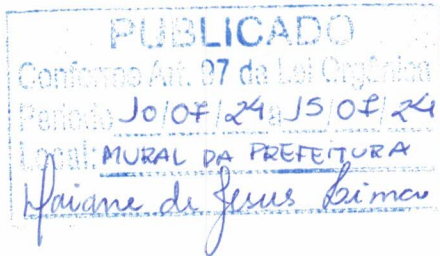 PUBLICADO
Conforme Art. 97 da Lei Orgânica
Período 10/07/24 a 15/07/24
Local: MURAL DA PREFEITURA
Daiane de Jesus Lima